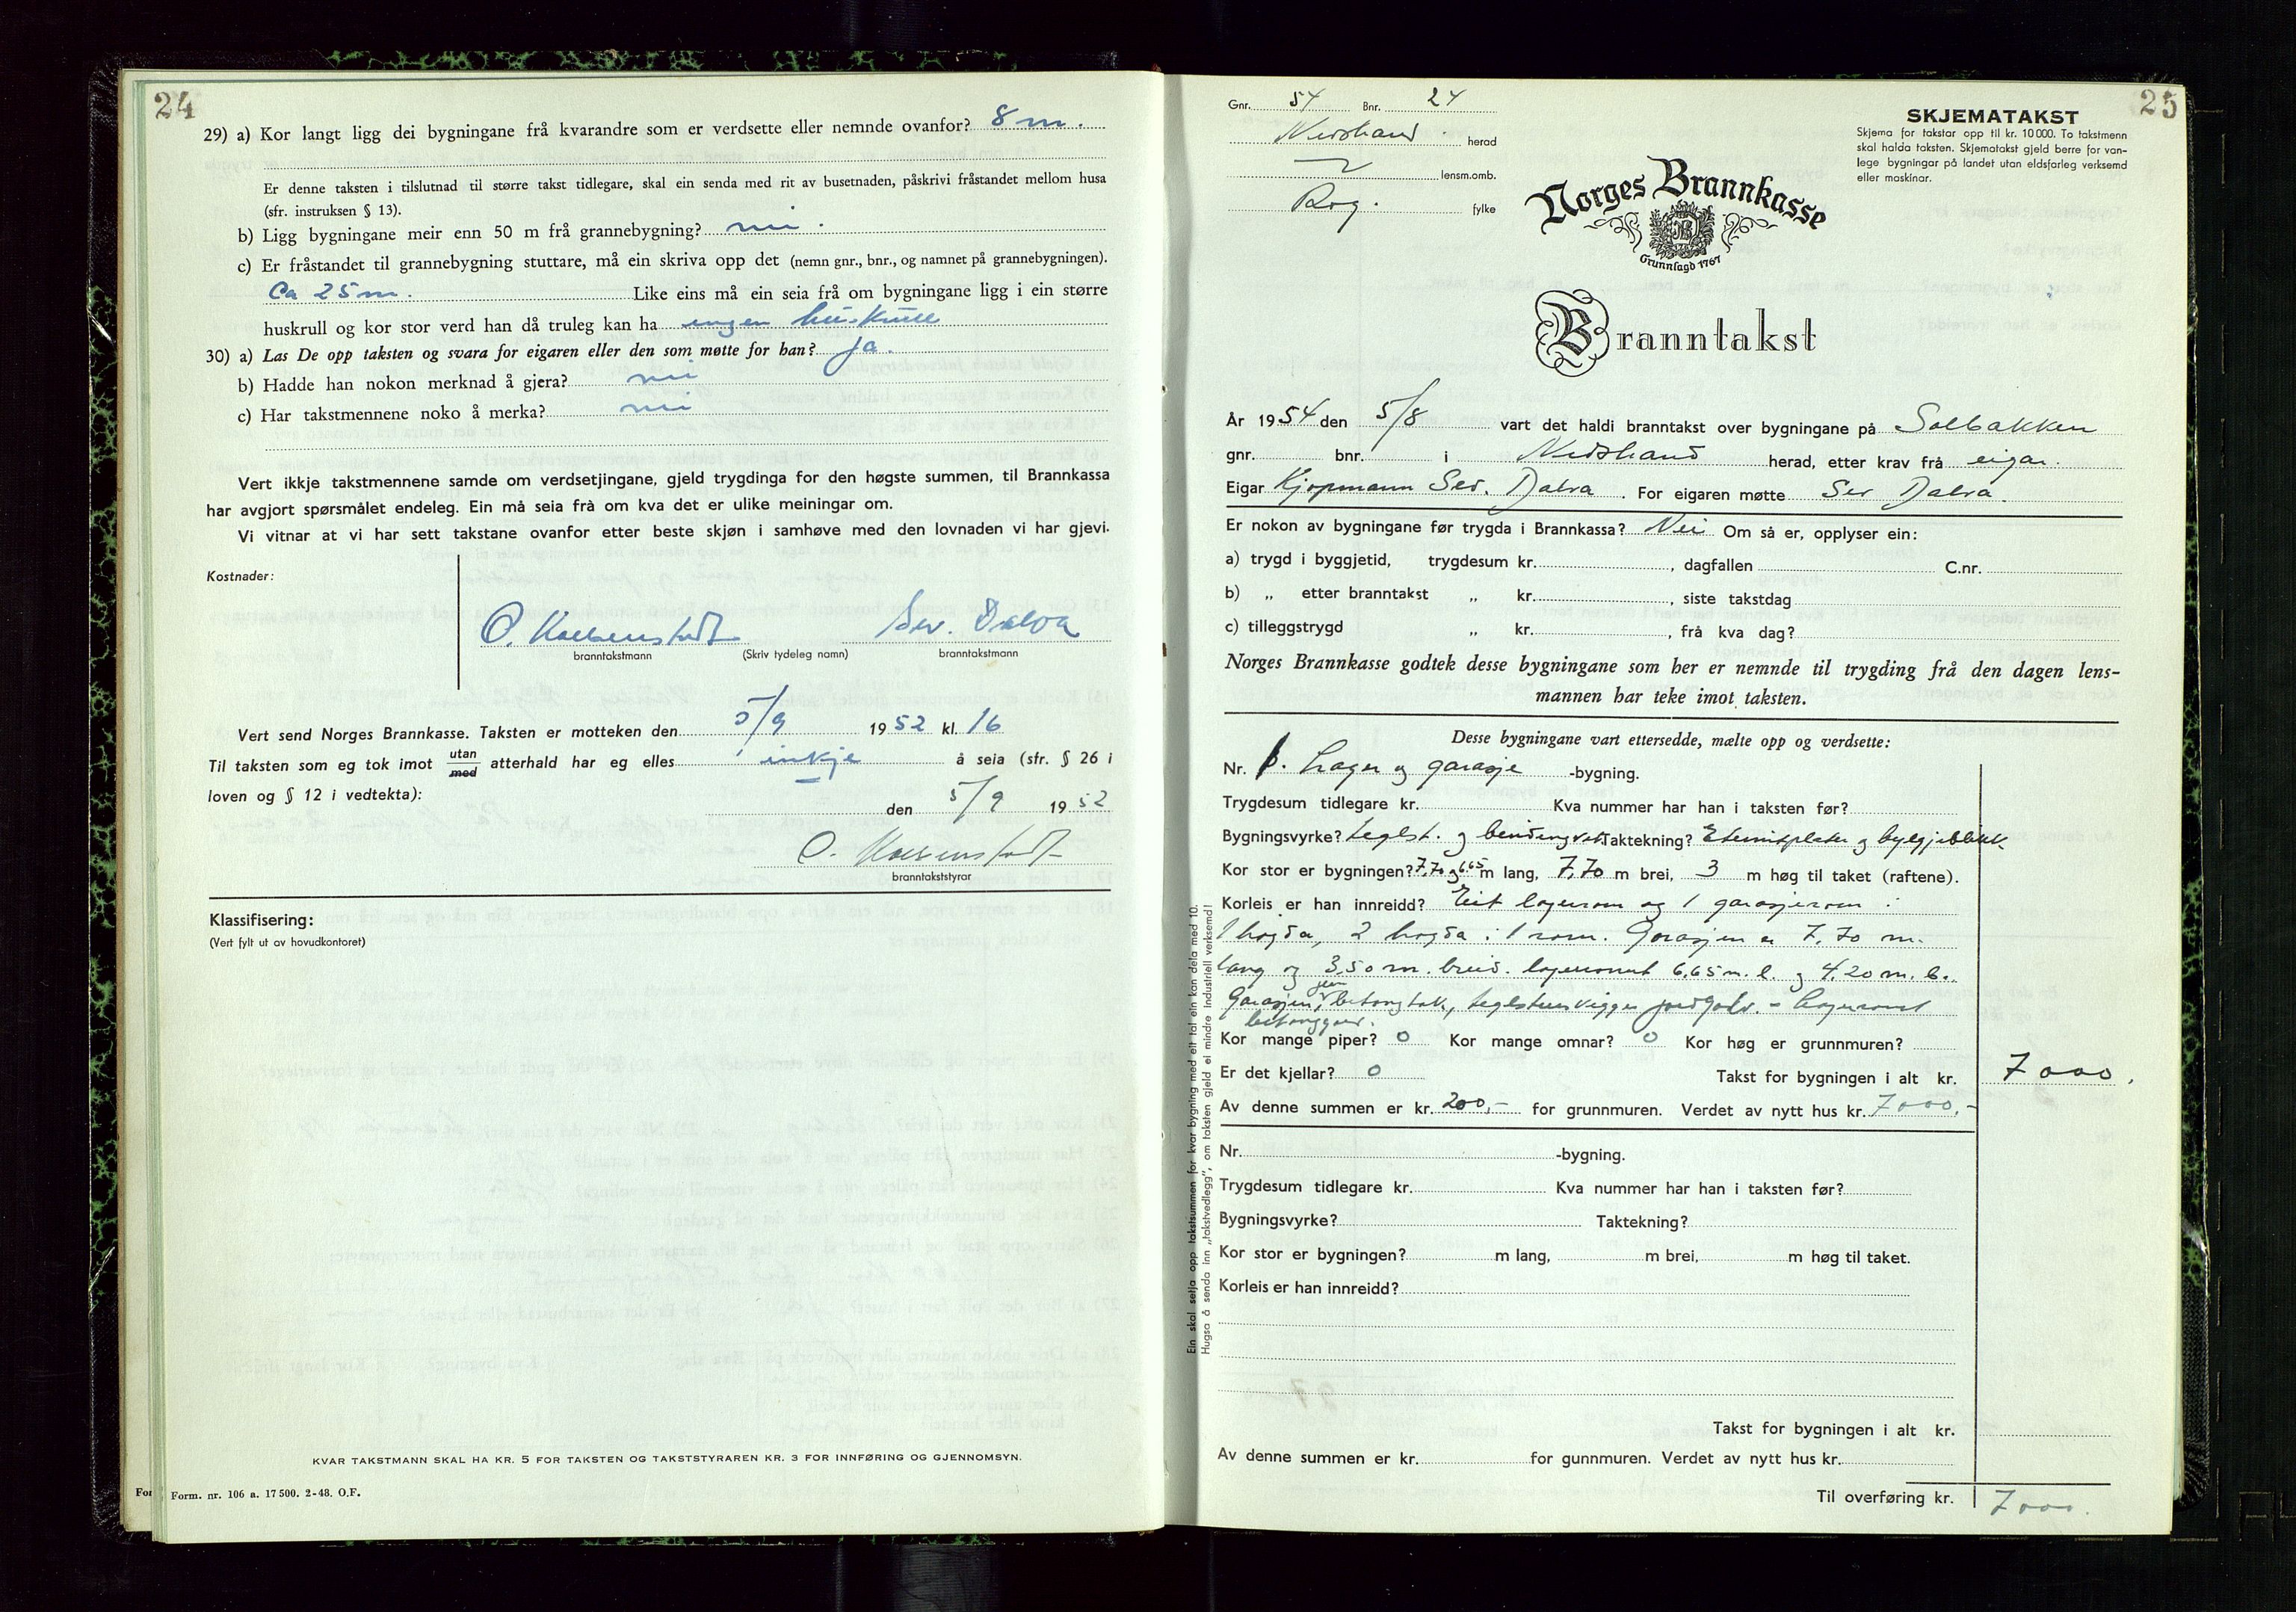 24
29) a) Kor langt ligg dei bygningane frå kvarandre som er verdsette eller nemnde ovanfor? 8 m.
Er denne taksten i tilslutnad til større takst tidlegare, skal ein senda med rit av busetnaden, påskrivi fråstandet mellom husa
(sfr. instruksen § 13).
b) Ligg bygningane meir enn 50 m frå grannebygning? nei.
c) Er fråstandet til grannebygning stuttare, må ein skriva opp det (nemn gnr., bnr., og namnet på grannebygningen).
Ca 25 m. Like eins må ein seia frå om bygningane ligg i ein større
huskrull og kor stor verd han då truleg kan ha ingen huskrull
30) a) Las De opp taksten og svara for eigaren eller den som møtte for han? ja.
b) Hadde han nokon merknad å gjera? nei
c) Har takstmennene noko å merka? nei
Vert ikkje takstmennene samde om verdsetjingane, gjeld trygdinga for den høgste summen, til Brannkassa
har avgjort spørsmålet endeleg. Ein må seia frå om kva det er ulike meiningar om.
Vi vitnar at vi har sett takstane ovanfor etter beste skjøn i samhøve med den lovnaden vi har gjevi.
Kostnader:
O. Sev. Dalva
branntakstmann (Skriv tydeleg namn) branntakstmann
Vert send Norges Brannkasse. Taksten er motteken den 5/9 1952 kl. 16
Til taksten som eg tok imot utan med atterhald har eg elles inkje å seia (sfr. § 26 i
loven og § 12 i vedtekta):
den 5/9 1952
O.
branntakststyrar
Klassifisering:
(Vert fylt ut av hovudkontoret)
KVAR TAKSTMANN SKAL HA KR. 5 FOR TAKSTEN OG TAKSTSTYRAREN KR. 3 FOR INNFØRING OG GJENNOMSYN.
For Form. nr. 106 a. 17 500. 2-48. O.F.
25
Gnr. 54 Bnr. 24
Nedstrand. herad
lensm.omb.
Rog. fylke
SKJEMATAKST
Skjema for takstar opp til kr. 10 000. To takstmenn
skal halda taksten. Skjematakst gjeld berre for van-
lege bygningar på landet utan eldsfarleg verksemd
eller maskinar.
Norges Brannkasse
Grunnlagd 1767
Branntakst
År 1954 den 5/8 vart det haldi branntakst over bygningane på Solbakken
gnr. bnr. i Nedstrand herad, etter krav frå eigar.
Eigar Kjøpmann Sev. Dalva. For eigaren møtte Sev Dalva.
Er nokon av bygningane før trygda i Brannkassa? Nei Om så er, opplyser ein:
a) trygd i byggjetid, trygdesum kr. , dagfallen C.nr.
b) „ etter branntakst „ kr. , siste takstdag
c) tilleggstrygd „ kr. , frå kva dag?
Norges Brannkasse godtek desse bygningane som her er nemnde til trygding frå den dagen lens-
mannen har teke imot taksten.
Desse bygningane vart ettersedde, mælte opp og verdsette:
Nr. 1. Lager og garasje -bygning.
Trygdesum tidlegare kr. Kva nummer har han i taksten før?
Bygningsvyrke? teglst. og bindingsverk Taktekning? Eternitplater og bylgjeblekk.
Kor stor er bygningen? 7,70 og 6.65 m lang, 7,70 m brei, 3 m høg til taket (raftene).
Korleis er han innreidd? Eit lagerrom og 1 garasjerom i
1 høgda, 2 høgda: 1 rom. Garasjen er 7,70 m.
lang og 3,50 m. breid. lagerromet 6,65 m. l. og 4.20 m. b.
Garasjen, jern betongtak, teglsteinsvegger jordgolv. - lagerromet
betonggolv.
Kor mange piper? 0 Kor mange omnar? 0 Kor høg er grunnmuren?
Er det kjellar? 0 Takst for bygningen i alt kr. 7000.
Av denne summen er kr. 200,- for grunnmuren. Verdet av nytt hus kr. 7000,-
Nr. -bygning.
Trygdesum tidlegare kr. Kva nummer har han i taksten før?
Bygningsvyrke? Taktekning?
Kor stor er bygningen? m lang, m brei, m høg til taket.
Korleis er han innreidd?
Takst for bygningen i alt kr.
Av denne summen er kr. for gunnmuren. Verdet av nytt hus kr.
Til overføring kr. 7000.
Ein skal setja opp takstsummen for kvar bygning med eit tal ein kan dela med 10.
Hugsa å senda inn „takstvedlegg", om taksten gjeld ei mindre industriell verksemd!